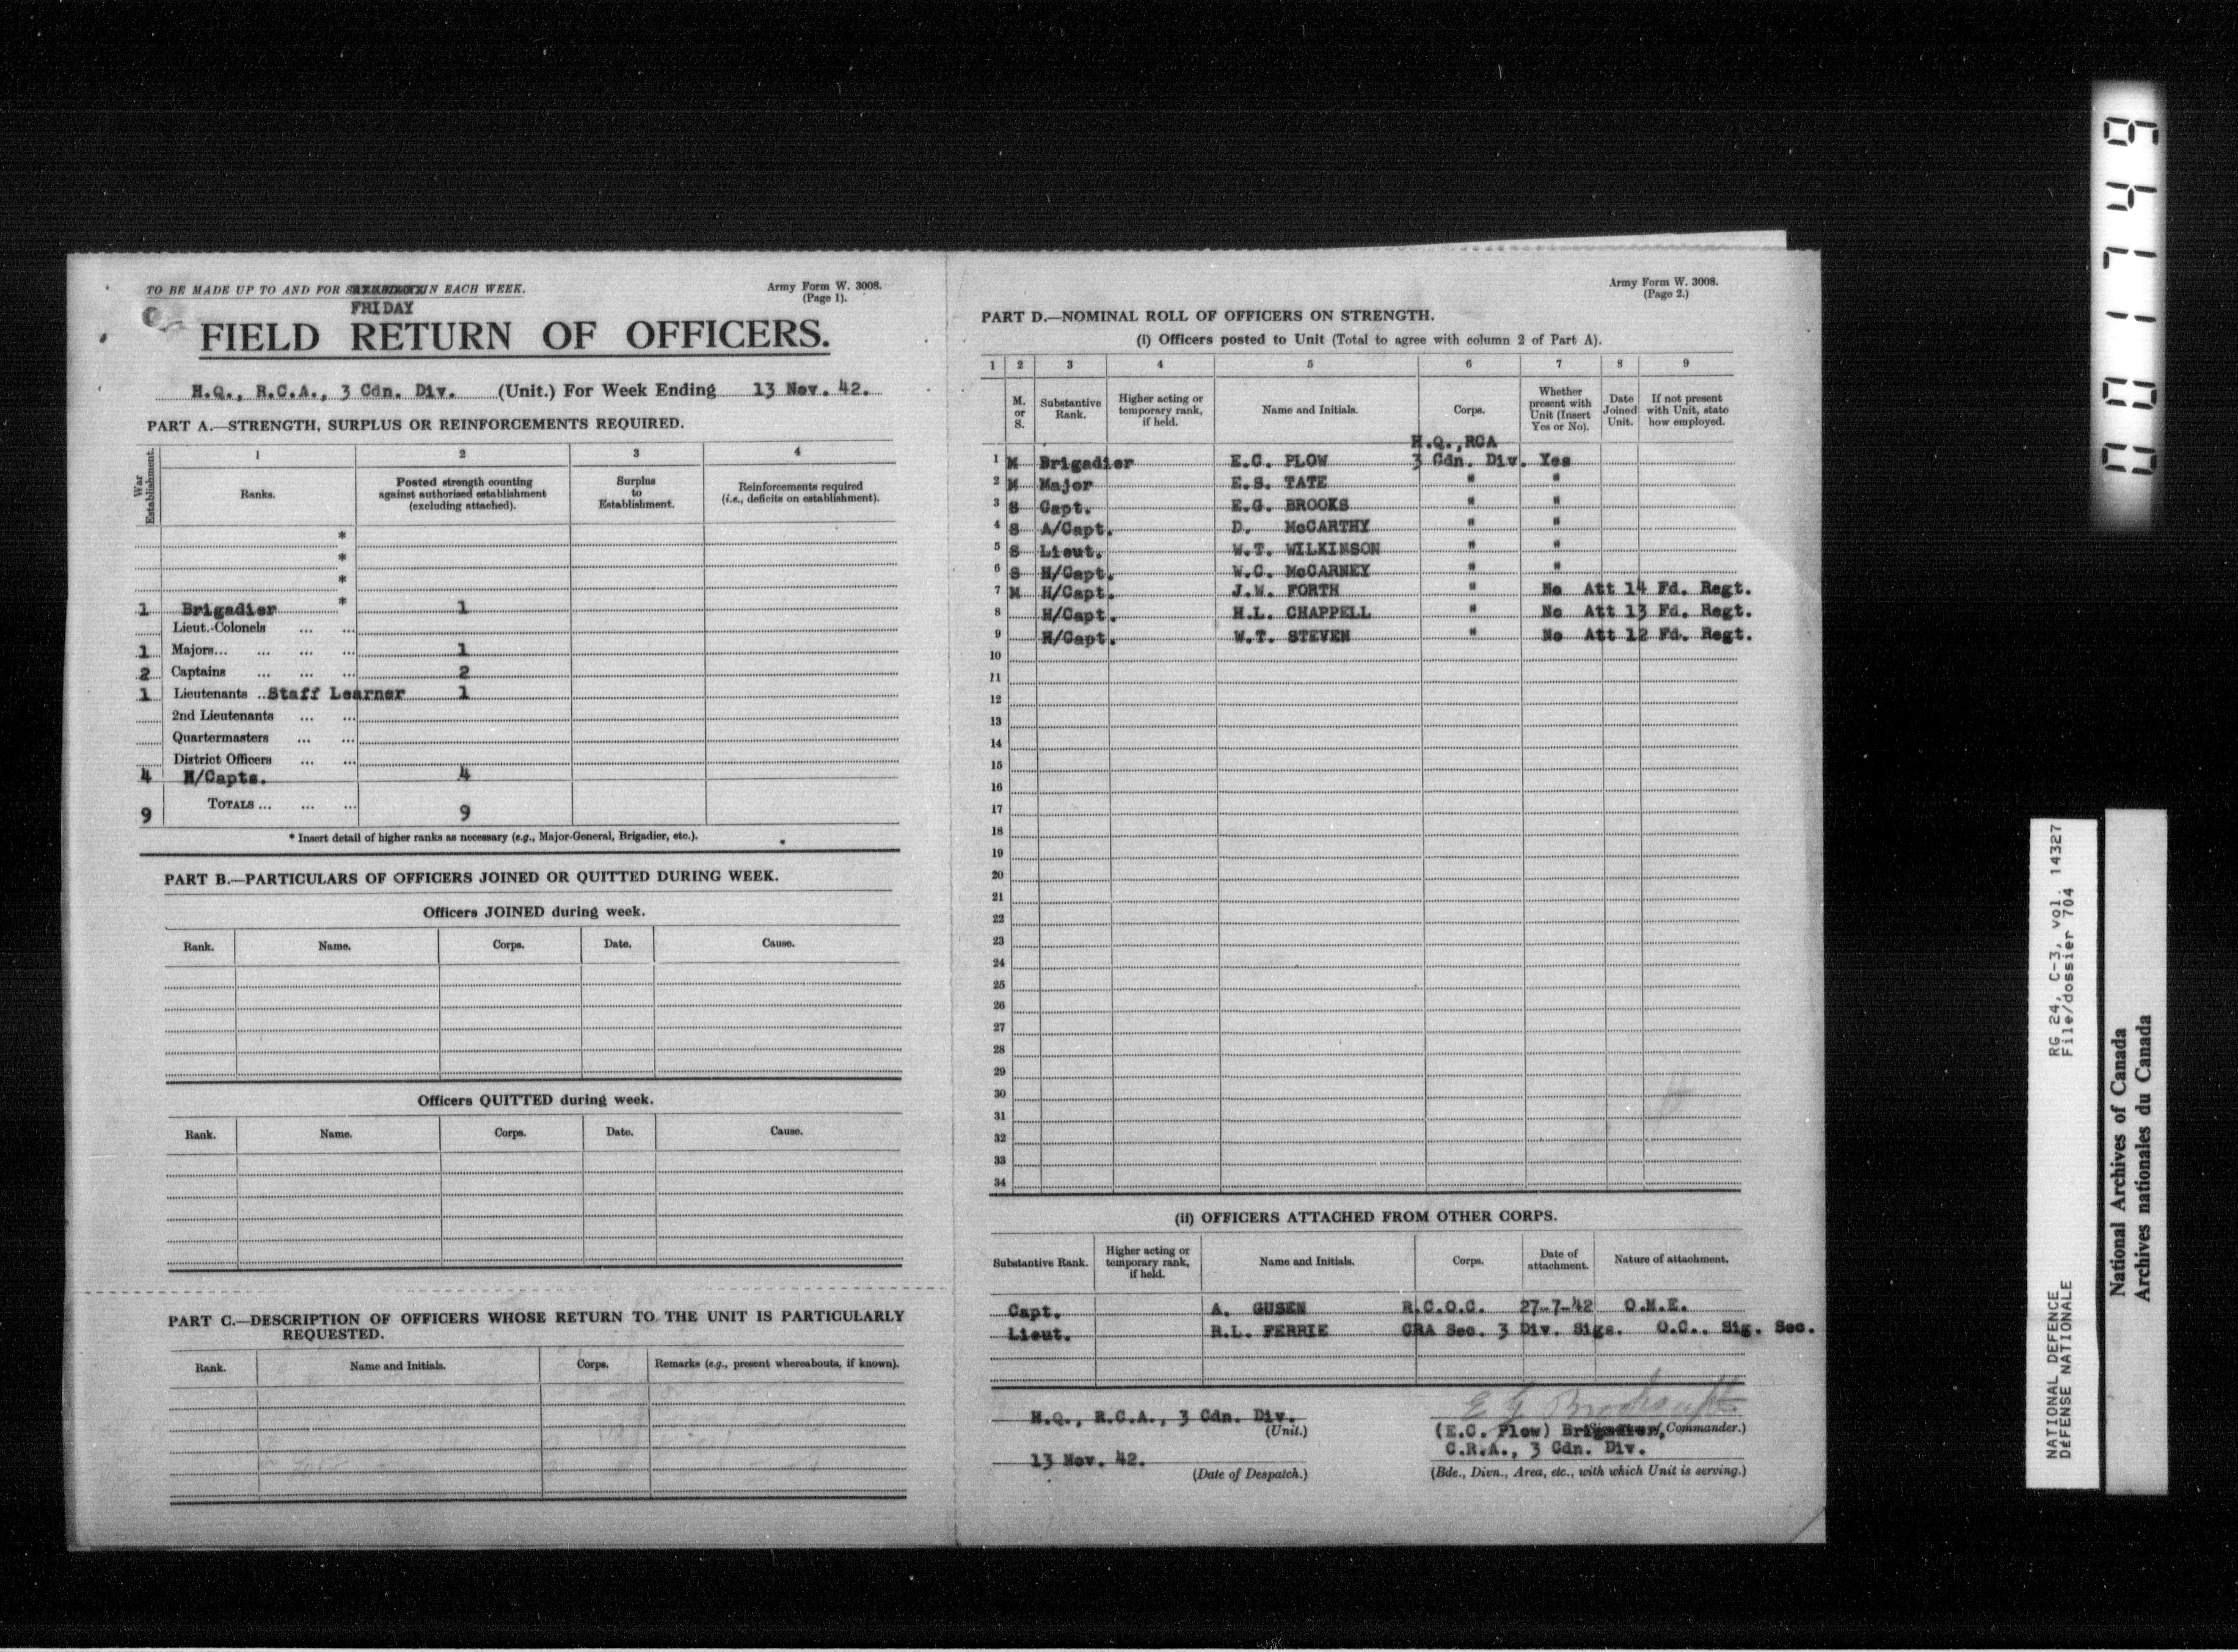 TO BE MADE UP TO AND FOR IN EACH WEEK.
FRIDAY
Army Form W. 3008.
(Page 1).
FIELD RETURN OF OFFICERS.
H.Q., R.C.A., 3 Cdn. Div. (Unit.) For Week Ending 13 Nov. 42.
PART A.—STRENGTH, SURPLUS OR REINFORCEMENTS REQUIRED.
War Establishment.
1 2 3 4
Ranks.
Posted strength counting against authorised establishment (excluding attached).
Surplus to Establishment.
Reinforcements required (i.e., deficits on establishment).
*
*
*
1 Brigadier * 1
Lieut.-Colonels ... ...
1 Majors... ... ... ... 1
2 Captains ... ... ... 2
1 Lieutenants ..Staff Learner 1
2nd Lieutenants ... ...
Quartermasters ... ...
District Officers ... ...
4 H/Capts. 4
9 TOTALS ... ... ... 9
* Insert detail of higher ranks as necessary (e.g., Major-General, Brigadier, etc.).
PART B.—PARTICULARS OF OFFICERS JOINED OR QUITTED DURING WEEK.
Officers JOINED during week.
Rank. Name. Corps. Date. Cause.
Officers QUITTED during week.
Rank. Name. Corps. Date. Cause.
PART C.—DESCRIPTION OF OFFICERS WHOSE RETURN TO THE UNIT IS PARTICULARLY
REQUESTED.
Rank. Name and Initials. Corps. Remarks (e.g., present whereabouts, if known).
Army Form W. 3008.
(Page 2.)
PART D.—NOMINAL ROLL OF OFFICERS ON STRENGTH.
(i) Officers posted to Unit (Total to agree with column 2 of Part A).
1 2 3 4 5 6 7 8 9
M. or S.
Substantive Rank.
Higher acting or temporary rank, if held.
Name and Initials.
Corps.
Whether present with Unit (Insert Yes or No).
Date Joined Unit.
If not present with Unit, state how employed.
H.Q.,RCA
1 M Brigadier E.C. PLOW 3 Cdn. Div. Yes
2 M Major E.S. TATE " "
3 S Capt. E.G. BROOKS " "
4 S A/Capt. D. McCARTHY " "
5 S Lieut. W.T. WILKINSON " "
6 S H/Capt. W.C. McCARNEY " "
7 M H/Capt. J.W. FORTH " No Att 14 Fd. Regt.
8 H/Capt. H.L. CHAPPELL No Att 13 Fd. Regt.
9 H/Capt. W.T. STEVEN " No Att 12 Fd. Regt.
10
11
12
13
14
15
16
17
18
19
20
21
22
23
24
25
26
27
28
29
30
31
32
33
34
(ii) OFFICERS ATTACHED FROM OTHER CORPS.
Substantive Rank.
Higher acting or temporary rank, if held.
Name and Initials.
Corps.
Date of attachment.
Nature of attachment.
Capt. A. GUSEN R.C.O.C. 27-7-42 O.M.E.
Lieut. R.L. FERRIE CRA Sec. 3 Div. Sigs. O.C.. Sig. Sec.
E G Brooks Capt
H.Q., R.C.A., 3 Cdn. Div.
(Unit.)
(E.C. Plow) Brigadier, Commander.)
C.R.A., 3 Cdn. Div.
13 Nov. 42.
(Date of Despatch.)
(Bde., Divn., Area, etc., with which Unit is serving.)
001749
NATIONAL DEFENCE RG 24, C-3, vol. 14327
DÉFENSE NATIONALE File/dossier 704
National Archives of Canada
Archives nationales du Canada